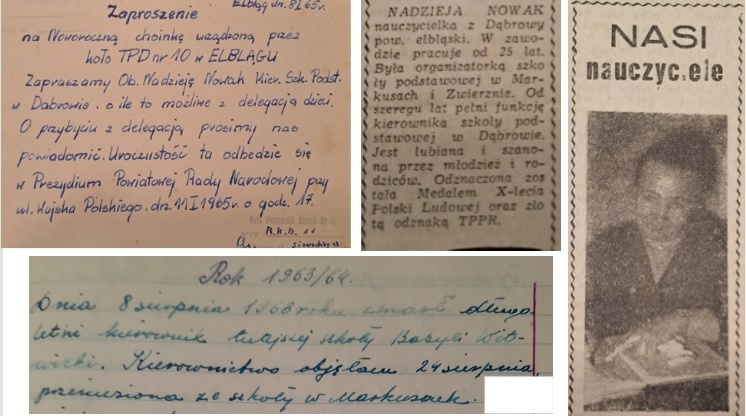 Elbląg dn. 8 I 65 r.
Zaproszenie
na Noworoczną choinkę urządzoną przez
koło TPD nr 10 w ELBLĄGU
Zapraszamy Ob. Nadzieję Nowak Kier. Szk. Podst.
w Dąbrowie. o ile to możliwe z delegacją dzieci.
O przybyciu z delegacją prosimy nas
powiadomić. Uroczystość ta odbędzie się
w Prezydium Powiatowej Rady Narodowej przy
ul. Wojska Polskiego. dn. 11 I 1965 r. o godz. 17.
R.K.B. 11
NADZIEJA NOWAK
nauczycielka z Dąbrowy
pow. elbląski. W zawo-
dzie pracuje od 25 lat.
Była organizatorką szko
ły podstawowej w Mar-
kusach i Zwierznie. Od
szeregu lat pełni funkcję
kierownika szkoły pod-
stawowej w Dąbrowie.
Jest lubiana i szano-
na przez młodzież i ro-
dziców. Odznaczona zo
stała Medalem X-lecia
Polski Ludowej oraz zło
tą odznaką TPPR.
NASI
nauczyciele
Rok 1963/64.
Dnia 8 sierpnia 1963 roku zmarł długo
letni kierownik tutejszej szkoły Bazyli Wit-
wicki. Kierownictwo objęłam 24 sierpnia,
przeniesiona ze szkoły w Markusach.